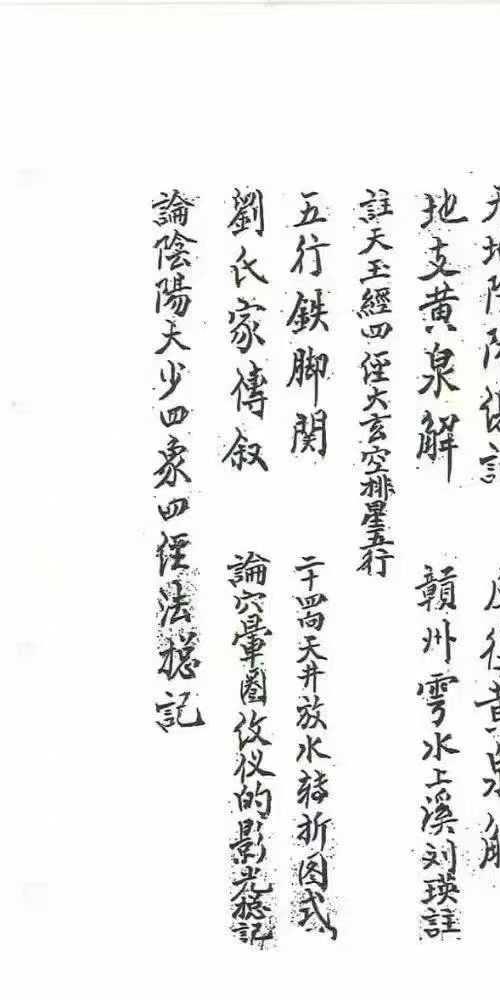 天地陰陽
黄泉解
地支黄泉解
贛州雩水上溪刘瑛註
註天玉經四經大玄空排星五行
五行鉄脚関
二十四向天井放水转折图式
劉氏家傳叙
論穴暈圈仪的影光捴記
論陰陽大少四象四經法捴記